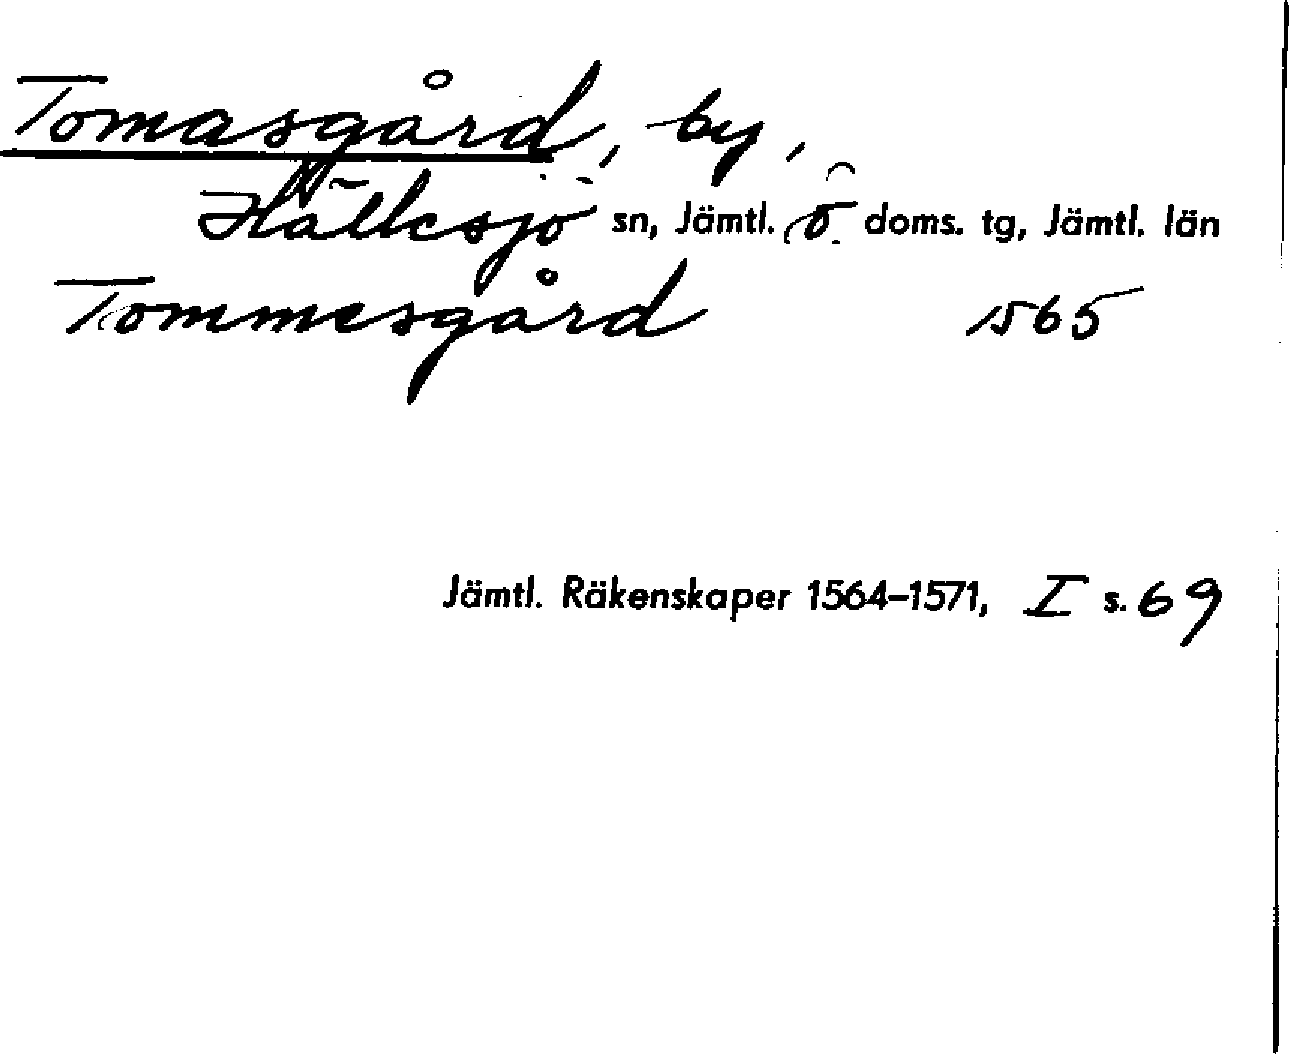 Tomasgård, by,
Hällesjö sn, Jämtl. ö. doms. tg, Jämtl. län
Tommesgård 1565
Jämtl. Räkenskaper 1564–1571, I s. 69